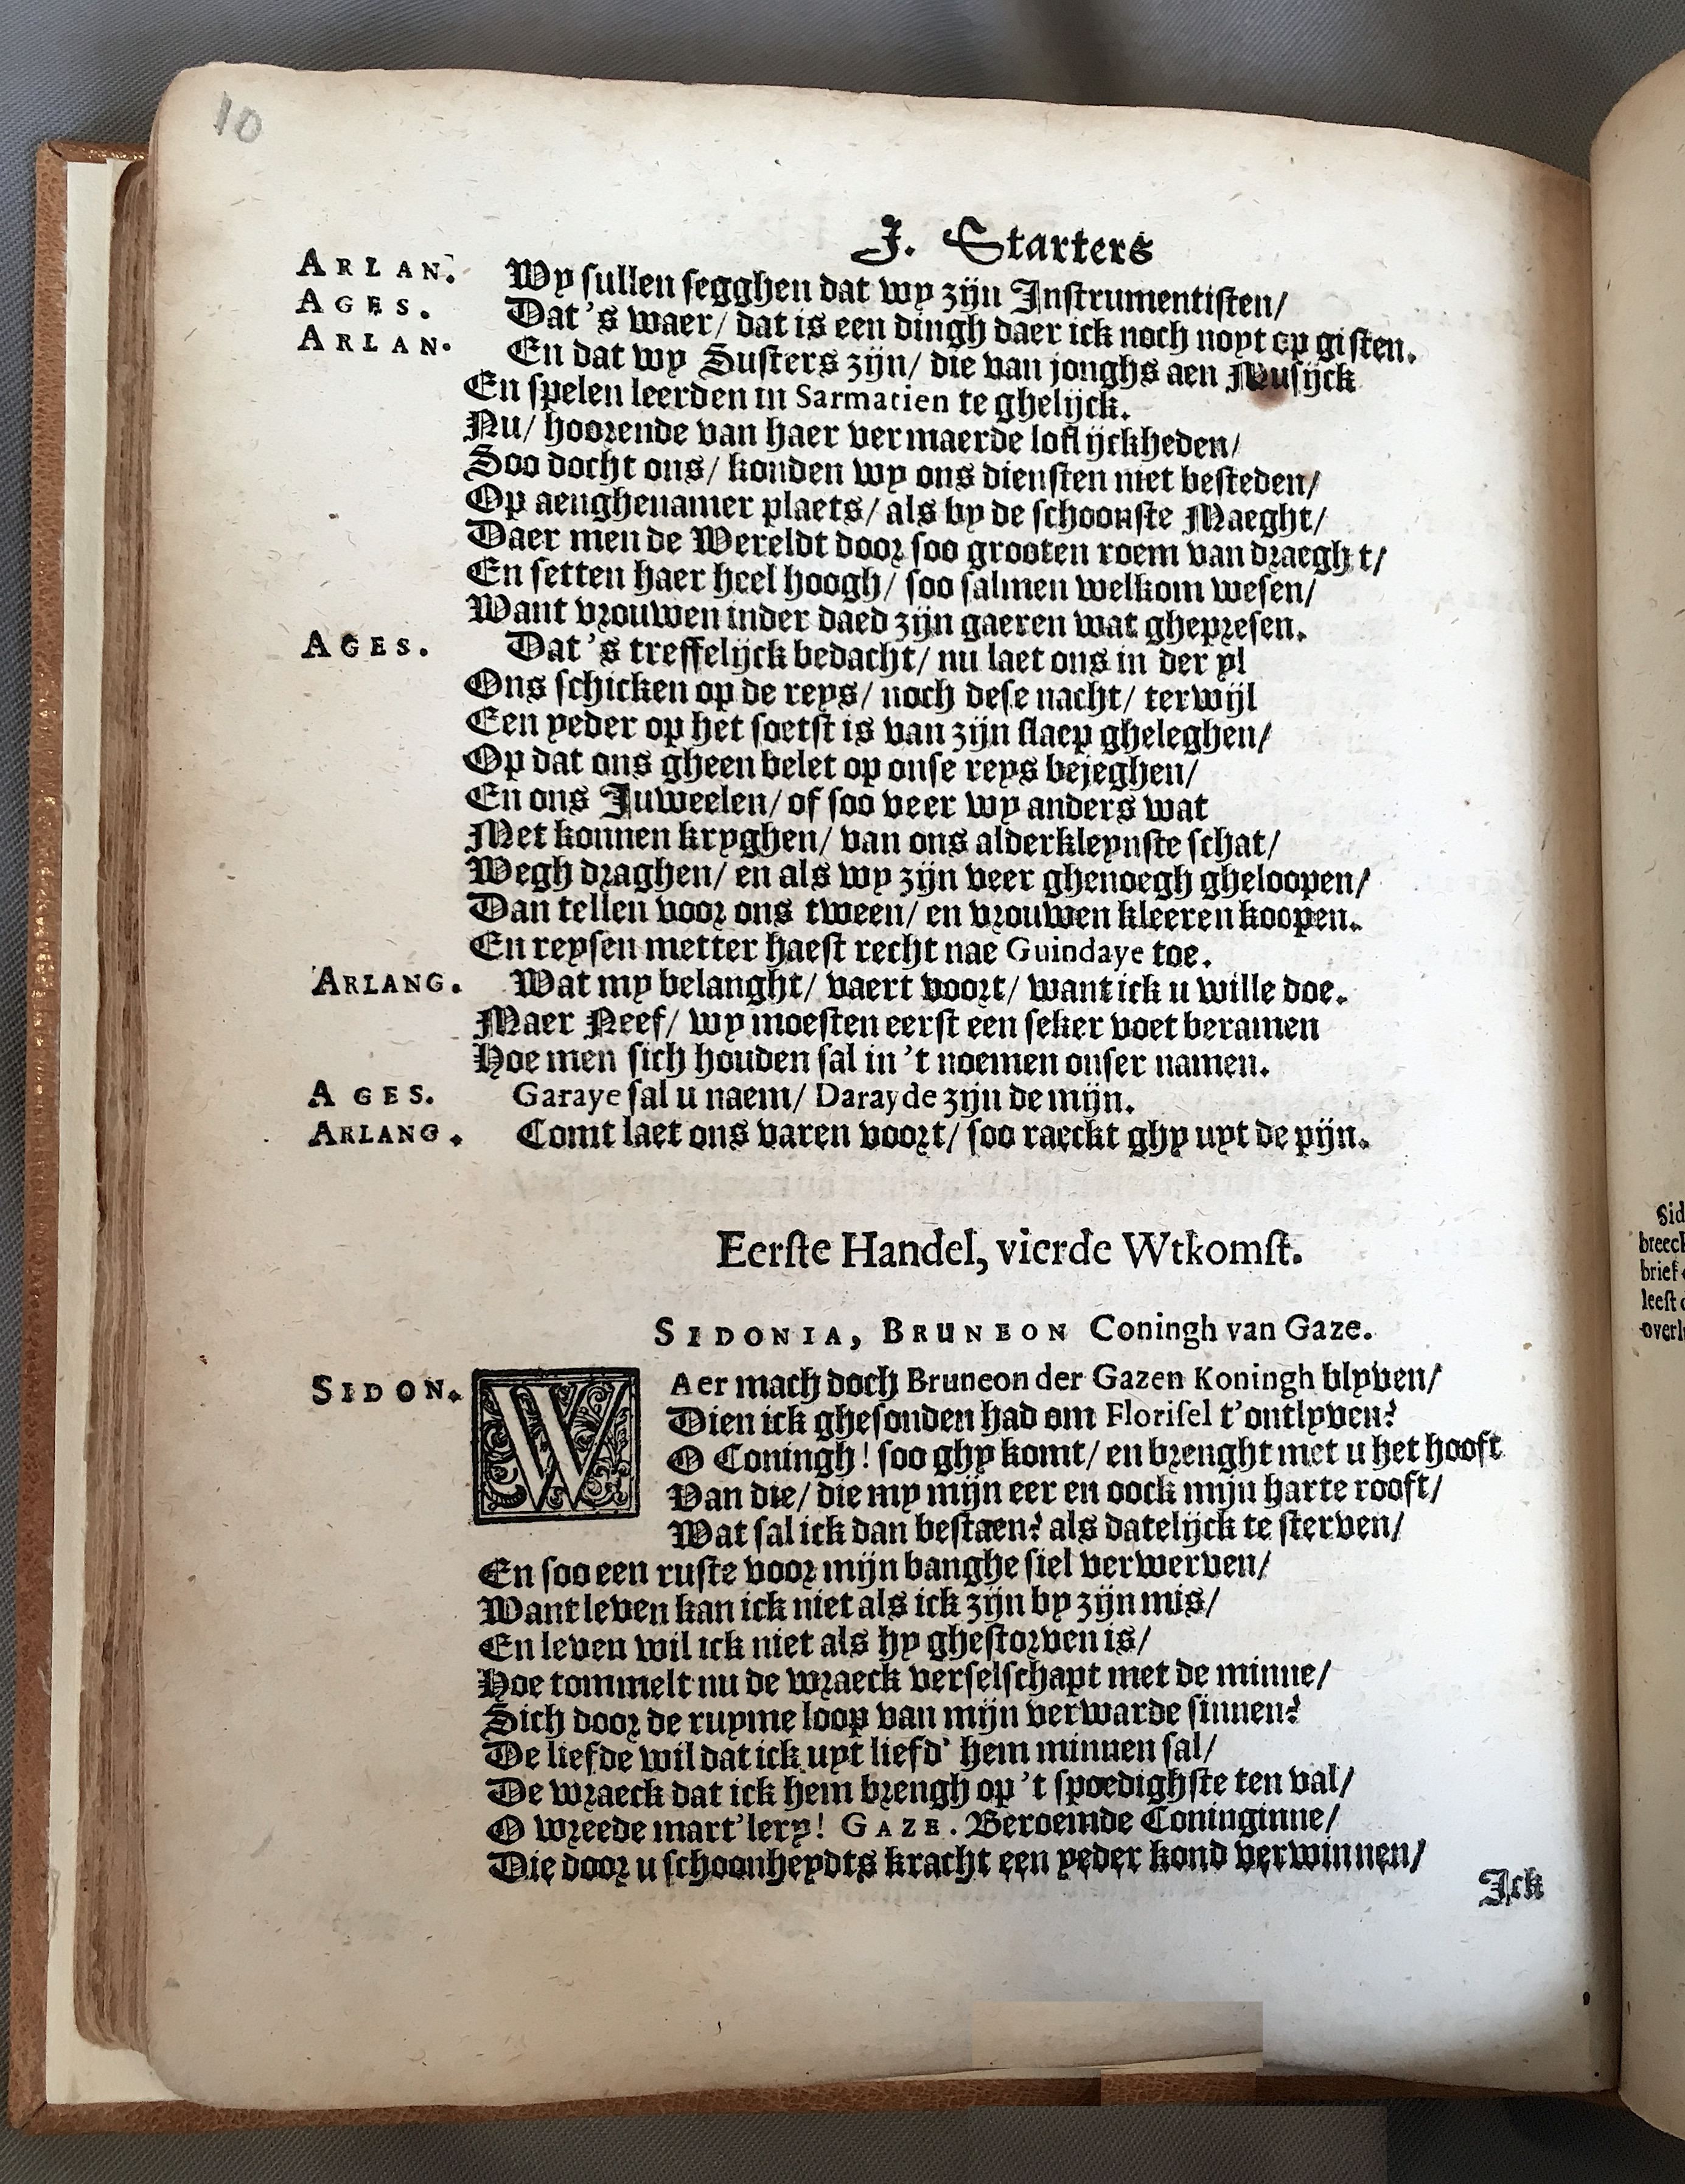 10
J. Starters
ARLAN. Wy sullen segghen dat wy zijn Instrumentisten/
AGES. Dat's waer/ dat is een dingh daer ick noch noyt op gisten.
ARLAN. En dat wy Susters zijn/ die van jonghs aen Musijck
En spelen leerden in Sarmatien te ghelijck.
Nu/ hoorende van haer vermaerde loflijckheden/
Soo docht ons/ konden wy ons diensten niet besteden/
Op aenghenamer plaets/ als by de schoonste Maeght/
Daer men de Wereldt door soo grooten roem van draegh t/
En setten haer heel hoogh/ soo salmen welkom wesen/
Want vrouwen inder daed zijn gaeren wat ghepresen.
AGES. Dat's treffelijck bedacht/ nu laet ons in der yl
Ons schicken op de reys/ noch dese nacht/ terwijl
Een yeder op het soetst is van zijn slaep gheleghen/
Op dat ons gheen belet op onse reys bejeghen/
En ons Juweelen/ of soo veer wy anders wat
Met konnen kryghen/ van ons alderkleynste schat/
Wegh draghen/ en als wy zijn veer ghenoegh gheloopen/
Dan tellen voor ons tween/ en vrouwen kleeren koopen.
En reysen metter haest recht nae Guindaye toe.
ARLANG. Wat my belanght/ vaert voort/ want ick u wille doe.
Maer Neef/ wy moesten eerst een seker voet beramen
Hoe men sich houden sal in 't noemen onser namen.
AGES. Garaye sal u naem/ Darayde zijn de mijn.
ARLANG. Comt laet ons varen voort/ soo raeckt ghy uyt de pijn.
Eerste Handel, vierde Wtkomst.
SIDONIA, BRUNEON Coningh van Gaze.
SIDON. WAer mach doch Bruneon der Gazen Koningh blyven/
Dien ick ghesonden had om Florisel t'ontlyven?
O Coningh! soo ghy komt/ en brenght met u het hooft
Van die/ die my mijn eer en oock mijn harte rooft/
Wat sal ick dan bestaen? als datelijck te sterven/
En soo een ruste voor mijn banghe siel verwerven/
Want leven kan ick niet als ick zijn by zijn mis/
En leven wil ick niet als hy ghestorven is/
Hoe tommelt nu de wraeck verselschapt met de minne/
Sich door de ruyme loop van mijn verwarde sinnen?
De liefde wil dat ick uyt liefd' hem minnen sal/
De wraeck dat ick hem brengh op 't spoedighste ten val/
O wreede mart'lery! GAZE. Beroemde Coninginne/
Die door u schoonheydts kracht een yeder kond verwinnen/
Ick
Sid
breeck
brief
leest
overl